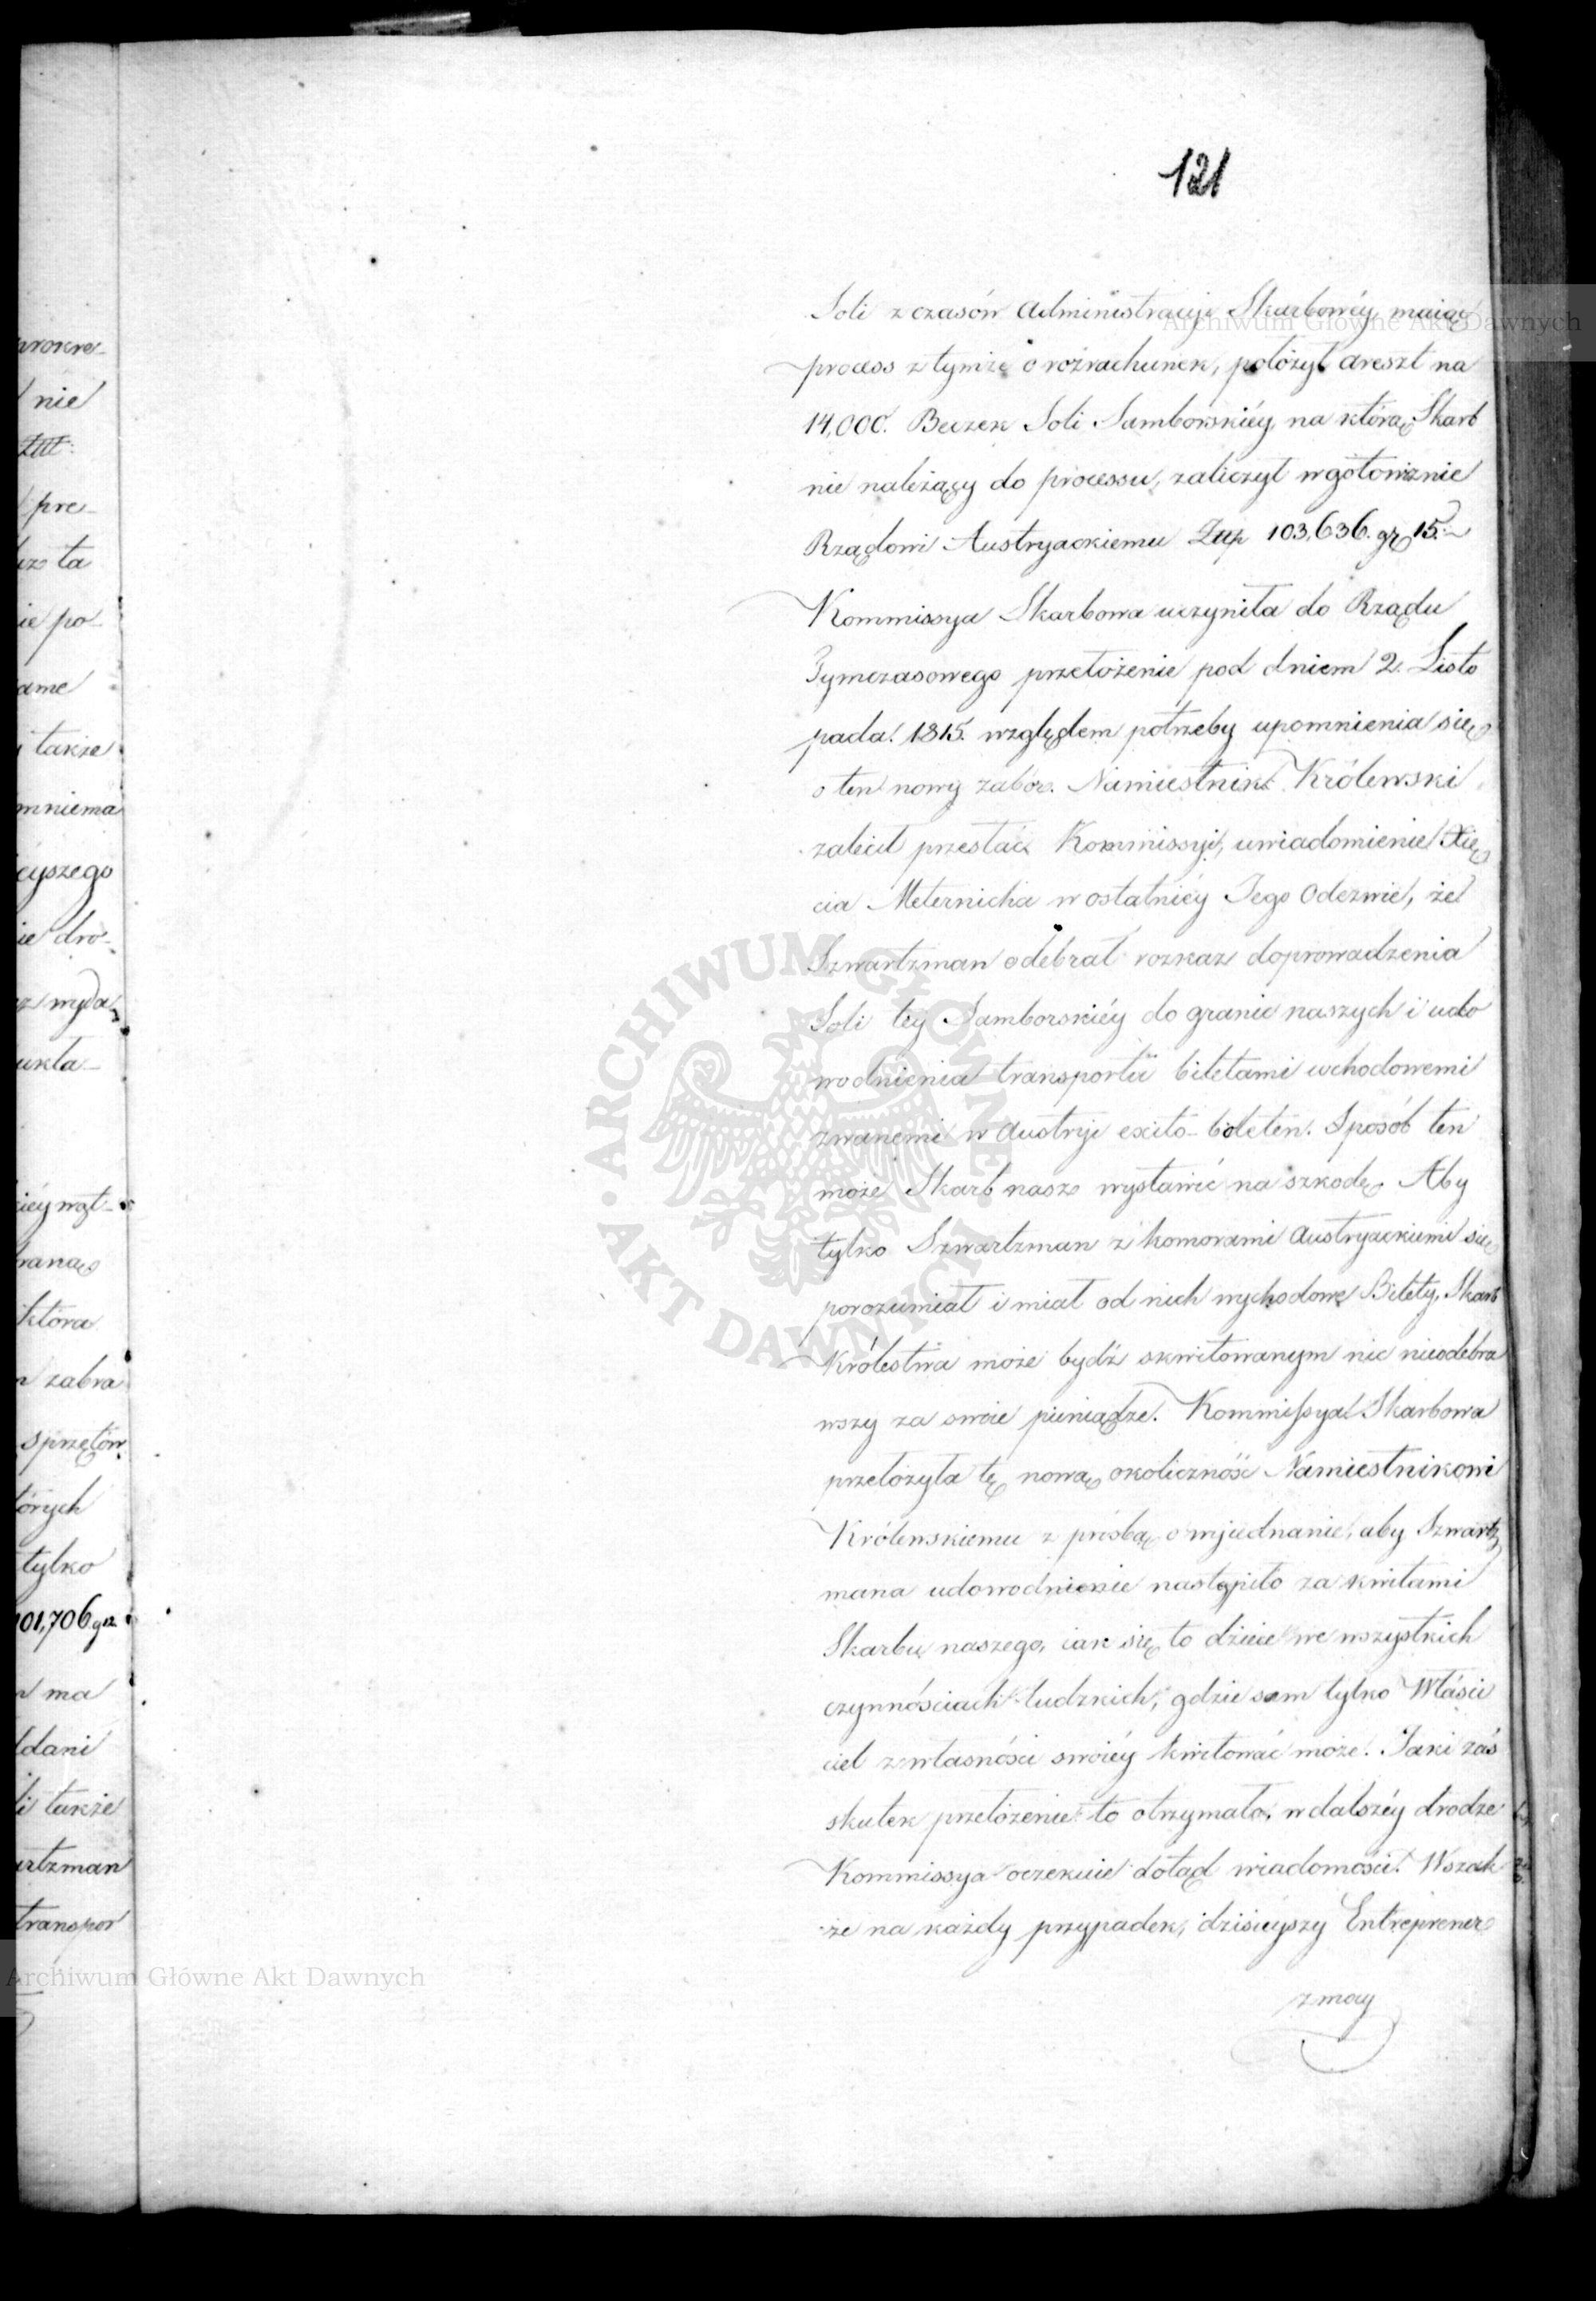 121
Soli z czasów Administracyi Skarbowéy, maiąc
process z tymże o rozrachunek, położył areszt na
14,000. Beczek Soli Samborskiéy, na którą Skarb
nie należący do processu, zaliczył w gotowiznie
Rządowi Austryackiemu Złłp 103,636. gr 15.
Kommissya Skarbowa uczyniła do Rządu
Tymczasowego przełożenie pod dniem 2. Listo
pada. 1815. względem potrzeby upomnienia się
o ten nowy zabór. Namiestnik Królewski
zalecił przesłać Kommissyi, uwiadomienie Xię
cia Meternicha w ostatniéy Jego Odezwie, że
Szwartzman odebrał rozkaz doprowadzenia
Soli téy Samborskiéy do granic naszych i udo
wodnienia transportu biletami wchodowemi
zwanemi w Austryi exito-bileten. Sposób ten
może Skarb nasz wystawić na szkodę. Aby
tylko Szwartzman z komorami Austryackiemi się
porozumiał i miał od nich wychodowe Bilety, Skarb
Królestwa może bydź skwitowanym nic nieodebra
wszy za swoie pieniądze. Kommissya Skarbowa
przełożyła tę nową okoliczność Namiestnikowi
Królewskiemu z prośbą o wyjednanie, aby Szwartz
mana udowodnienie nastąpiło za kwitami
Skarbu naszego, iak się to dzieie we wszystkich
czynnościach ludzkich, gdzie sam tylko Właści
ciel z własności swoiéy kwitować może. Jaki zaś
skutek przełożenie to otrzymało, w dalszéy drodze
Kommissya oczekuie dotąd wiadomości. Wszak
że na każdy przypadek, dzisieyszy Entreprener
z mocy
nie
pre-
ta
po-
także
mniema
dro-
która
zabra
sprzętów
tylko
101,706 gr
ma
także
transpor
Archiwum Główne Akt Dawnych
Archiwum Główne Akt Dawnych
ARCHIWUM GŁÓWNE · AKT DAWNYCH ·